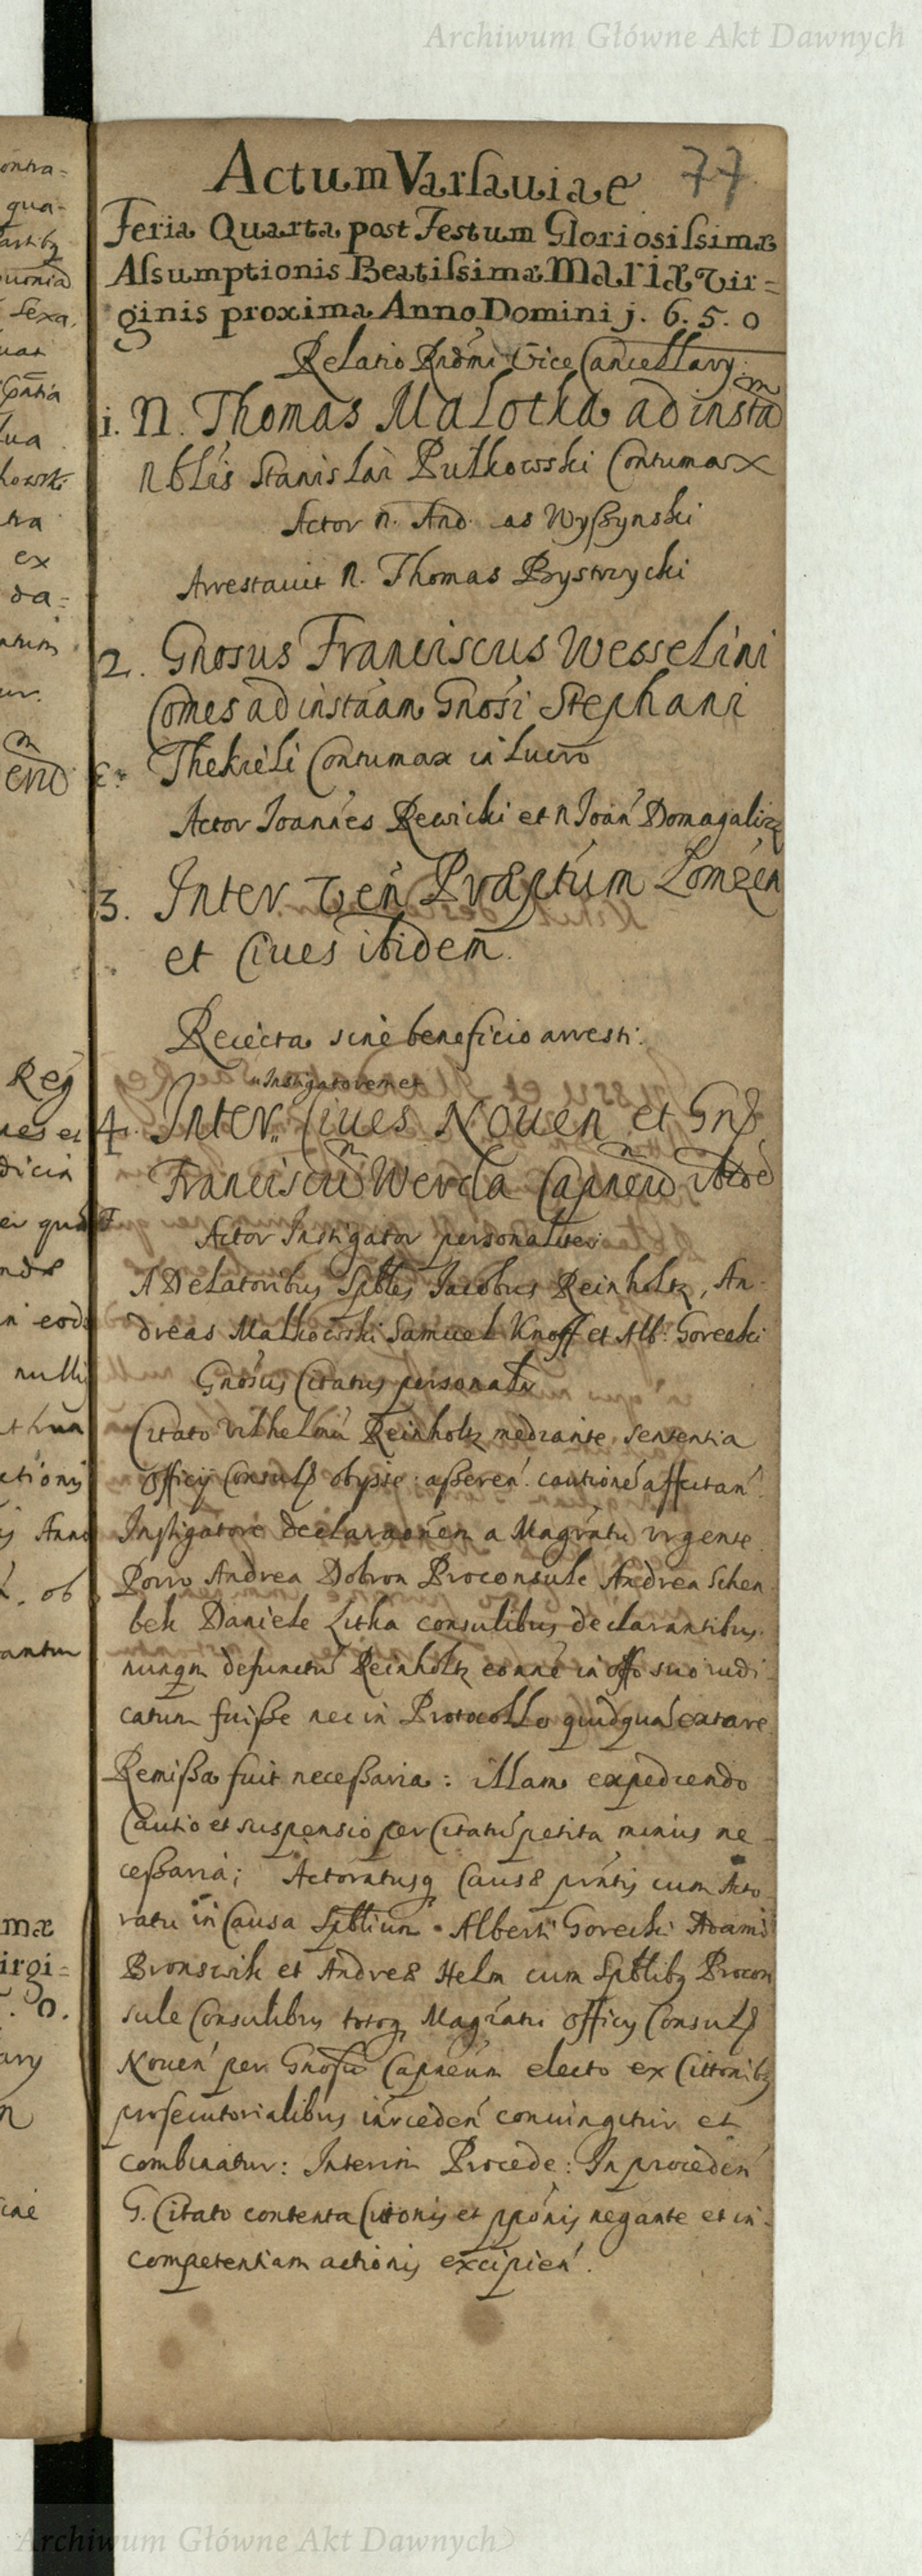 Archiwum Główne Akt Dawnych
77
Actum Varsauiae
Feria Quarta post Festum Gloriosissimæ
Assumptionis Beatissimæ Mariæ Vir=
ginis proxima Anno Domini j. 6. 5. 0
Relatio Rndmi Vice Cancellary.
i. N. Thomas Malotka ad instam
Nblis Stanislai Rutkowski Contumax
Actor n. And. as Wyszynski
Arrestauit N. Thomas Bystrzycki
2. Gnosus Franciscus Wesselini
Comes ad instãam Gnosi Stephani
Thekieli Contumax in lucro
Actor Joannes Rewicki et n Joan Domagalicz
3. Inter Gen Præptum Lomzen
et Ciues ibidem.
Reiecta sine beneficio arresti.
Instigatorem et
4. Inter Ciues Nouen et Gn
Franciscum Werda Capneum ibid
Actor Instigator personaliter
A Delatoribus Spbles Jacobus Reinholtz, An-
dreas Malkowski Samuel Knoff et Alb. Gorecki
Gnosus Citatus personalr
Citato Vilhelmu Reinholtz mediante sententia
Officij Consul obysse asseren. cautione affectan
Instigatore declaraonem a Magratu vrgente
Porro Andrea Dobron Proconsule Andrea Schen
bek Daniele Litka consulibus declarantibus
nunqm defunctu Reinholtz eonne in offo suo iudi-
catum fuisse nec in Protocollo quidquam extare
Remissa fuit necessaria: illam expediendo
Cautio et suspensio per Citatu petita minus ne-
cessaria; Actoratusq Causæ prntis cum Acto-
ratu in Causa Spblium Alberti Gorecki Adami
Bronswik et Andreæ Helm cum Spblibq Procon
sule Consulibus totoq Magratu officy Consul
Nouen per Gnosu Capneum electo ex Cittonibq
prosecutorialibus inrceden conuingitur et
combinatur: Interim Procede: In proceden
G. Citato contenta Cittonis et pponis negante et in-
competentiam actionis excipien.
Archiwum Główne Akt Dawnych